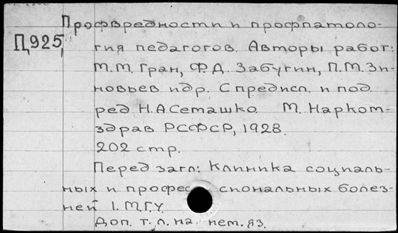 Профвредности и профпатоло-
Д925
гия педагогов. Авторы работ:
М.М. Гран, Ф.Д. Забугин, П.М. Зи-
новьев и др. С предисл. и под
ред Н.А Семашко М. Нарком-
здрав РСФСР, 1928.
202 стр.
Перед загл: Клиника социаль-
ных и профессиональных болез-
ней I. МГУ.
Доп. т. л. на нем. яз.